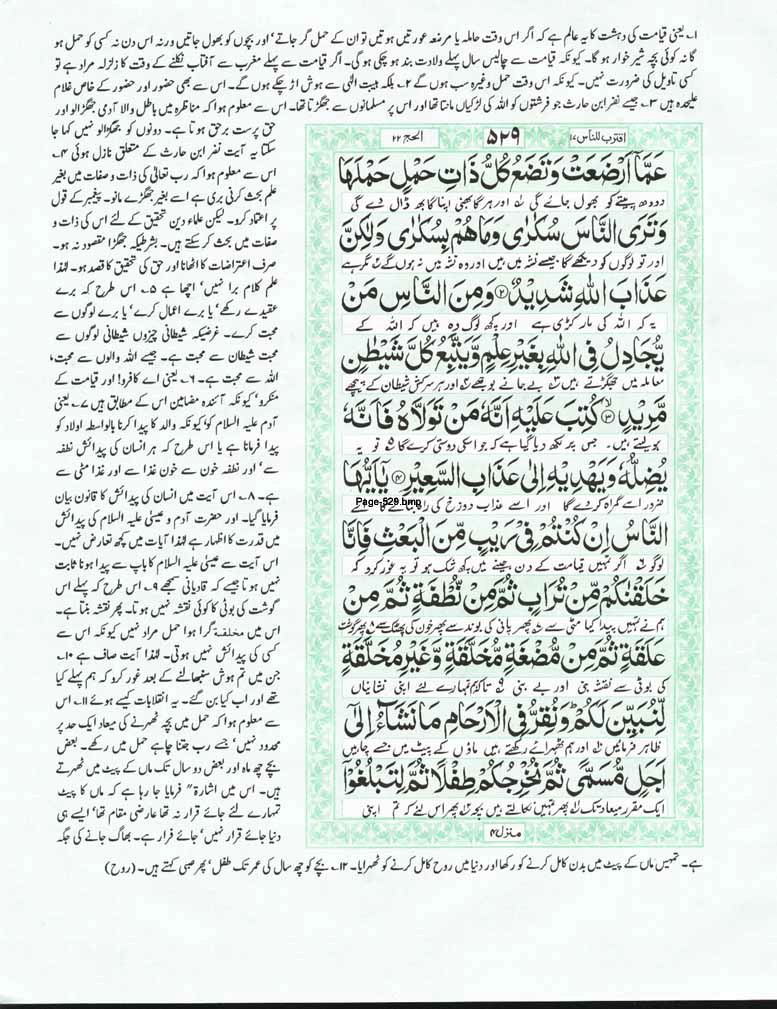 ۱۔ یعنی قیامت کی دہشت کا یہ عالم ہے کہ اگر اس وقت حاملہ یا مرضعہ عورتیں ہوتیں تو ان کے حمل گر جاتے' اور بچوں کو بھول جاتیں ورنہ اس دن نہ کسی کو حمل ہو
گا نہ کوئی بچہ شیر خوار ہو گا۔ کیونکہ قیامت سے چالیس سال پہلے ولادت بند ہو چکی ہوگی۔ اگر قیامت سے پہلے مغرب سے آفتاب نکلنے کے وقت کا زلزلہ مراد ہے تو
کسی تاویل کی ضرورت نہیں۔ کیونکہ اس وقت حمل وغیرہ سب ہوں گے ۲۔ بلکہ ہیبت الٰہی سے ہوش اڑ چکے ہوں گے۔ اس سے بھی حضور اور حضور کے خاص غلام
علیحدہ ہیں ۳۔ جیسے نضر ابن حارث جو فرشتوں کو اللہ کی لڑکیاں مانتا تھا اور اس پر مسلمانوں سے جھگڑتا تھا۔ اس سے معلوم ہوا کہ مناظرہ میں باطل والا آدمی جھگڑالو اور
حق پرست برحق ہوتا ہے۔ دونوں کو جھگڑالو نہیں کہا جا
سکتا یہ آیت نضر ابن حارث کے متعلق نازل ہوئی ۴۔
اس سے معلوم ہوا کہ رب تعالیٰ کی ذات و صفات میں بغیر
علم بحث کرنی بری ہے اسے بغیر جھگڑے مانو۔ پیغمبر کے قول
پر اعتماد کرو۔ لیکن علماء دین تحقیق کے لئے اس کی ذات و
صفات میں بحث کر سکتے ہیں۔ بشرطیکہ جھگڑا مقصود نہ ہو۔
صرف اعتراضات کا اٹھانا اور حق کی تحقیق کا قصد ہو۔ لہٰذا
علم کلام برا نہیں' اچھا ہے ۵۔ اس طرح کہ برے
عقیدے رکھے' یا برے اعمال کرے' یا برے لوگوں سے
محبت کرے۔ غرضیکہ شیطانی چیزوں شیطانی لوگوں سے
محبت شیطان سے محبت ہے۔ جیسے اللہ والوں سے محبت،
اللہ سے محبت ہے۔ ۶۔ یعنی اے کافرو! اور قیامت کے
منکرو' کیونکہ آئندہ مضامین اس کے مطابق ہیں ۷۔ یعنی
آدم علیہ السلام کو' کیونکہ والد کا پیدا کرنا بالواسطہ اولاد کو
پیدا فرمانا ہے یا اس طرح کہ ہر انسان کی پیدائش نطفہ
سے' اور نطفہ خون سے خون غذا سے اور غذا مٹی سے
ہے۔ ۸۔ اس آیت میں انسان کی پیدائش کا قانون بیان
فرمایا گیا۔ اور حضرت آدم و عیسیٰ علیہ السلام کی پیدائش
میں قدرت کا اظہار ہے لہٰذا آیات میں کچھ تعارض نہیں۔
اس آیت سے عیسیٰ علیہ السلام کا باپ سے پیدا ہونا ثابت
نہیں ہوتا جیسے کہ قادیانی سمجھے ۹۔ اس طرح کہ پہلے اس
گوشت کی بوٹی کا کوئی نقشہ نہیں ہوتا۔ پھر نقشہ بنتا ہے۔
اس میں مخلقة گرا ہوا حمل مراد نہیں کیونکہ اس سے
کسی کی پیدائش نہیں ہوتی۔ لہٰذا آیت صاف ہے ۱۰۔
جن میں تم ہوش سنبھالنے کے بعد غور کرو کہ ہم پہلے کیا
تھے اور اب کیا بن گئے۔ یہ انقلابات کیسے ہوئے ۱۱۔ اس
سے معلوم ہوا کہ حمل میں بچہ ٹھہرنے کی میعاد ایک حد پر
محدود نہیں' جسے رب جتنا چاہے حمل میں رکھے۔ بعض
بچے چھ ماہ اور بعض دو سال تک ماں کے پیٹ میں ٹھہرتے
ہیں۔ اس میں اشارۃً فرمایا جا رہا ہے کہ ماں کا پیٹ
تمہارے لئے جائے قرار نہ تھا عارضی مقام تھا' ایسے ہی
دنیا جائے قرار نہیں' جائے فرار ہے۔ بھاگ جانے کی جگہ
اقترب للناس ۱۷ ۵۲۹ الحج ۲۲
عَمَّآ اَرْضَعَتْ وَتَضَعُ كُلُّ ذَاتِ حَمْلٍ حَمْلَهَا
دودھ پیتے کو بھول جائے گی ۱ اور ہر گابھنی اپنا گابھ ڈال دے گی
وَتَرَى النَّاسَ سُكٰرٰى وَمَا هُمْ بِسُكٰرٰى وَلٰكِنَّ
اور تو لوگوں کو دیکھے گا جیسے نشہ میں ہیں اور وہ نشہ میں نہ ہوں گے ۲ مگر ہے
عَذَابَ اللّٰهِ شَدِيْدٌ ۲ وَمِنَ النَّاسِ مَنْ
یہ کہ اللہ کی مار کڑی ہے اور کچھ لوگ وہ ہیں کہ اللہ کے
يُّجَادِلُ فِى اللّٰهِ بِغَيْرِ عِلْمٍ وَّيَتَّبِعُ كُلَّ شَيْطٰنٍ
معاملہ میں جھگڑتے ہیں ۳ بے جانے بوجھے ۴ اور ہر سرکش شیطان کے پیچھے
مَّرِيْدٍ ۳ كُتِبَ عَلَيْهِ اَنَّهٗ مَنْ تَوَلَّاهُ فَاَنَّهٗ
ہو لیتے ہیں۔ جس پر لکھ دیا گیا ہے کہ جو اسکی دوستی کرے گا ۵ تو یہ
يُضِلُّهٗ وَيَهْدِيْهِ اِلٰى عَذَابِ السَّعِيْرِ ۴ يٰٓاَيُّهَا
ضرور اسے گمراہ کر دے گا اور اسے عذاب دوزخ کی راہ
Page-529.bmp
النَّاسُ اِنْ كُنْتُمْ فِىْ رَيْبٍ مِّنَ الْبَعْثِ فَاِنَّا
لوگو ۶ اگر تمہیں قیامت کے دن جینے میں کچھ شک ہو تو یہ غور کرو کہ
خَلَقْنٰكُمْ مِّنْ تُرَابٍ ثُمَّ مِنْ نُّطْفَةٍ ثُمَّ مِنْ
ہم نے تمہیں پیدا کیا مٹی سے ۷ پھر پانی کی بوند سے پھر خون کی پھٹک سے ۸ پھر گوشت
عَلَقَةٍ ثُمَّ مِنْ مُّضْغَةٍ مُّخَلَّقَةٍ وَّغَيْرِ مُخَلَّقَةٍ
کی بوٹی سے نقشہ بنی اور بے بنی ۹ تاکہ ہم تمہارے لئے اپنی نشانیاں
لِّنُبَيِّنَ لَكُمْ وَنُقِرُّ فِى الْاَرْحَامِ مَا نَشَآءُ اِلٰٓى
ظاہر فرمائیں ۱۰ اور ہم ٹھہرائے رکھتے ہیں ماؤں کے پیٹ میں جسے چاہیں
اَجَلٍ مُّسَمًّى ثُمَّ نُخْرِجُكُمْ طِفْلًا ثُمَّ لِتَبْلُغُوْٓا
ایک مقرر میعاد تک ۱۱ پھر تمہیں نکالتے ہیں بچہ ۱۲ پھر اس لئے کہ تم اپنی
منزل ۴
ہے۔ تمہیں ماں کے پیٹ میں بدن کامل کرنے کو رکھا اور دنیا میں روح کامل کرنے کو ٹھہرایا۔ ۱۲۔ بچے کو چھ سال کی عمر تک طفل' پھر صبی کہتے ہیں۔ (روح)